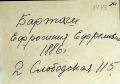 1493
Бартош
Ефросиния Ефремовна
1886г
2 Слободская 115